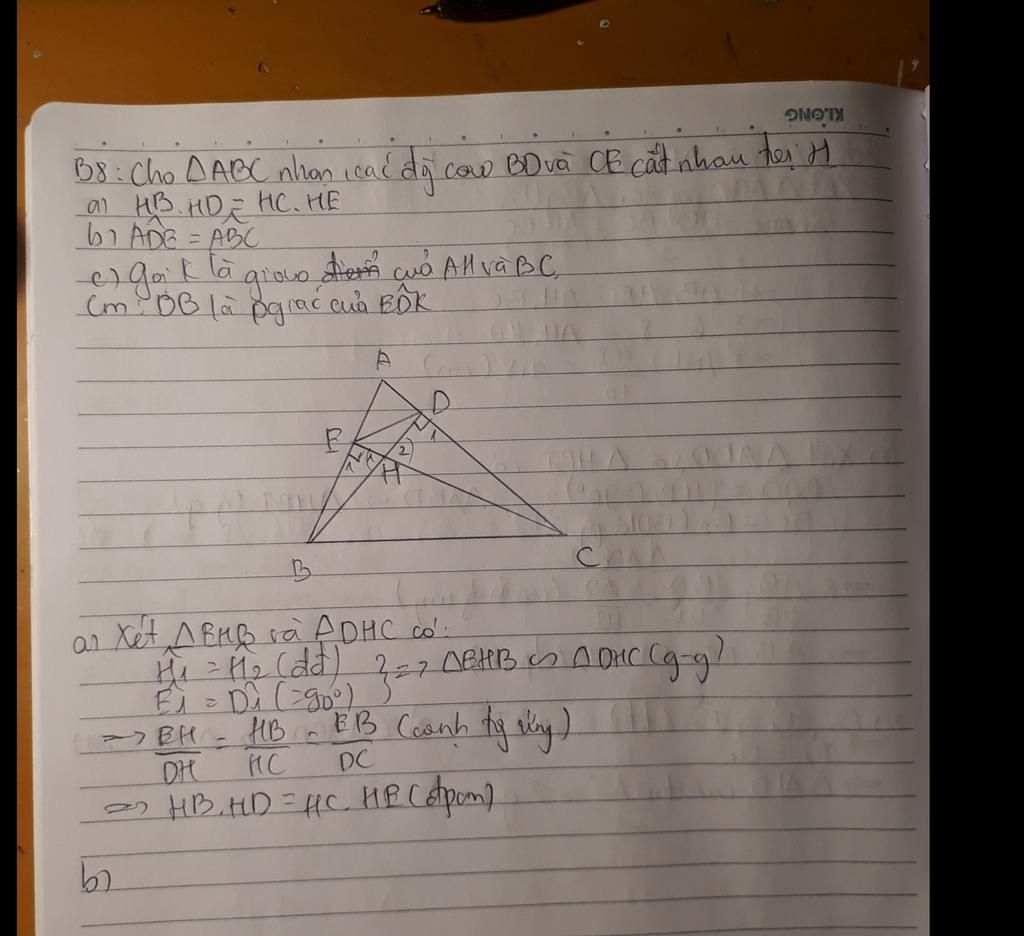 KLONG
B8: Cho △ABC nhọn, các đg cao BD và CE cắt nhau tại H
a) HB.HD = HC.HE
b) ADE^ = ABC^
c) gọi K là giao điểm của AH và BC,
Cm: DB là pgiác của EDK^
A
D
E
1
2
1
1
H
B
C
a) Xét △EHB và △DHC có:
Ĥ1 = Ĥ2 (đđ) } => △EHB ∽ △DHC (g-g)
Ê1 = D̂1 (=90°)
=> EH/DH = HB/HC = EB/DC (cạnh tg ứng)
=> HB.HD = HC.HE (đpcm)
b)